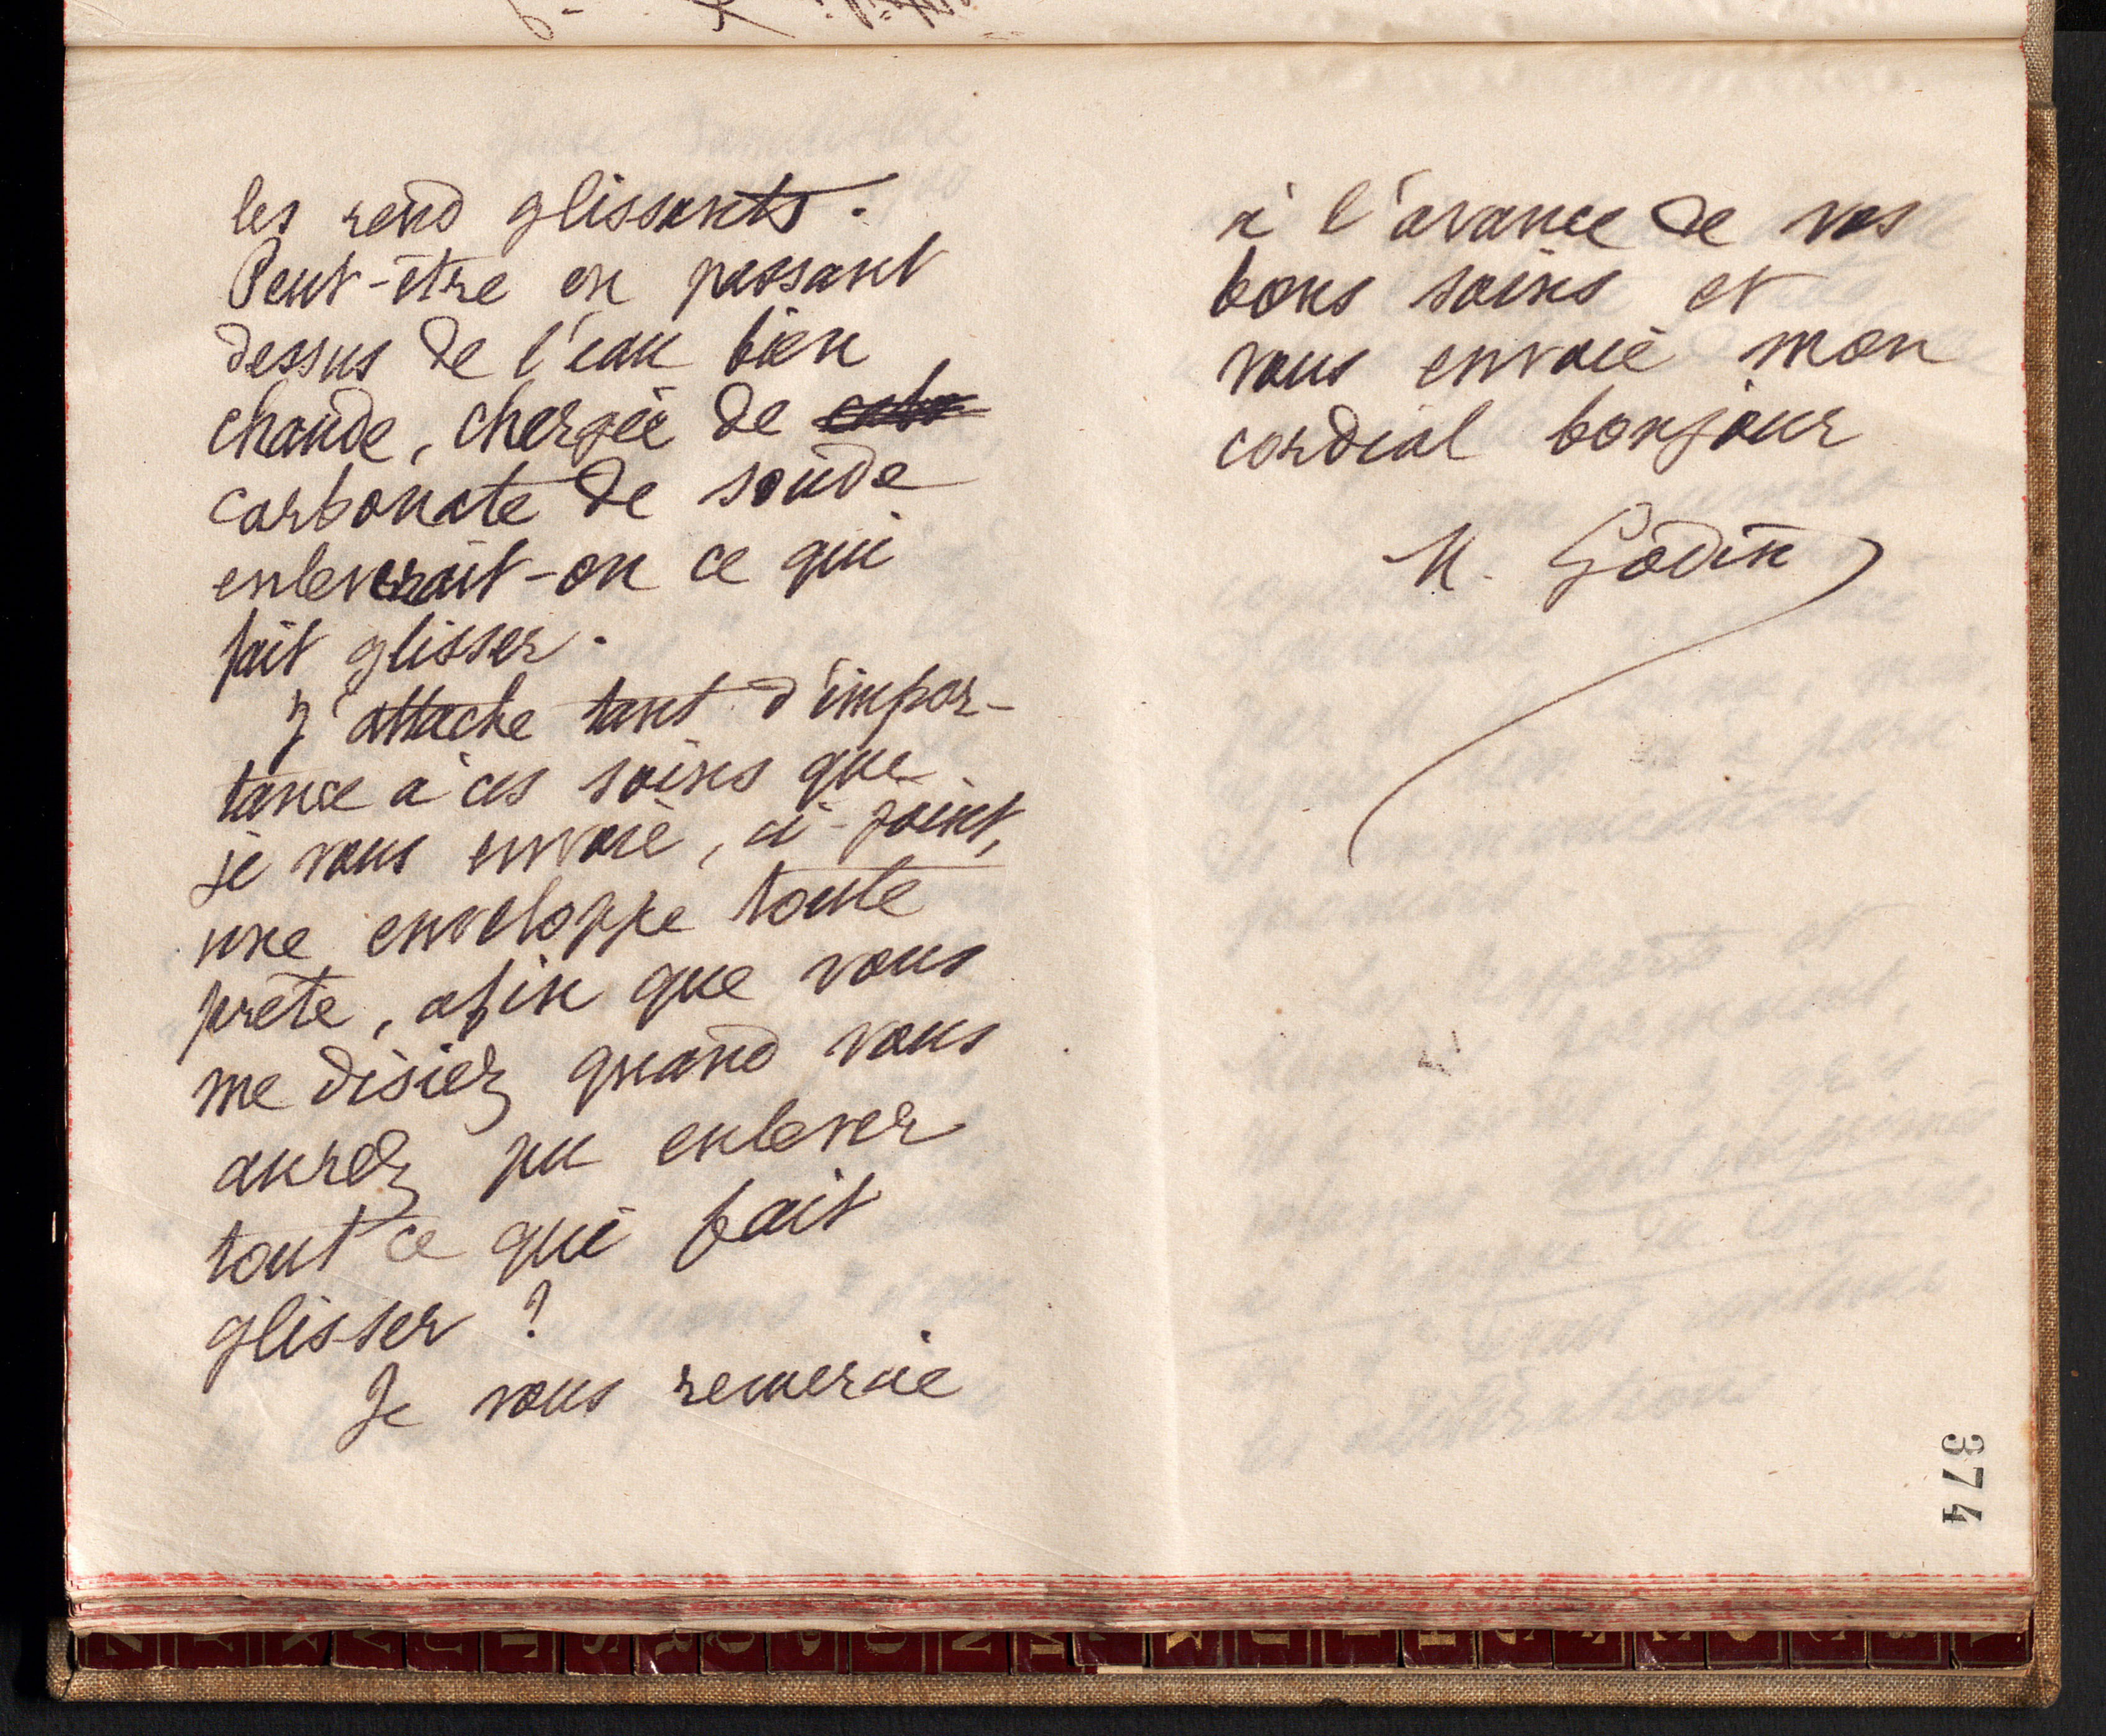 les rend glissants.
Peut-être en passant
dessus de l'eau bien
chaude, chargée de
carbonate de soude
enleverait-on ce qui
fait glisser.
J'attache tant d'impor-
tance à ces soins que
je vous envoie, ci-joint,
une enveloppe toute
prête, afin que vous
me disiez quand vous
aurez pu enlever
tout ce qui fait
glisser ?
Je vous remercie
à l'avance de vos
bons soins et
vous envoie mon
cordial bonjour
M. Godin
374